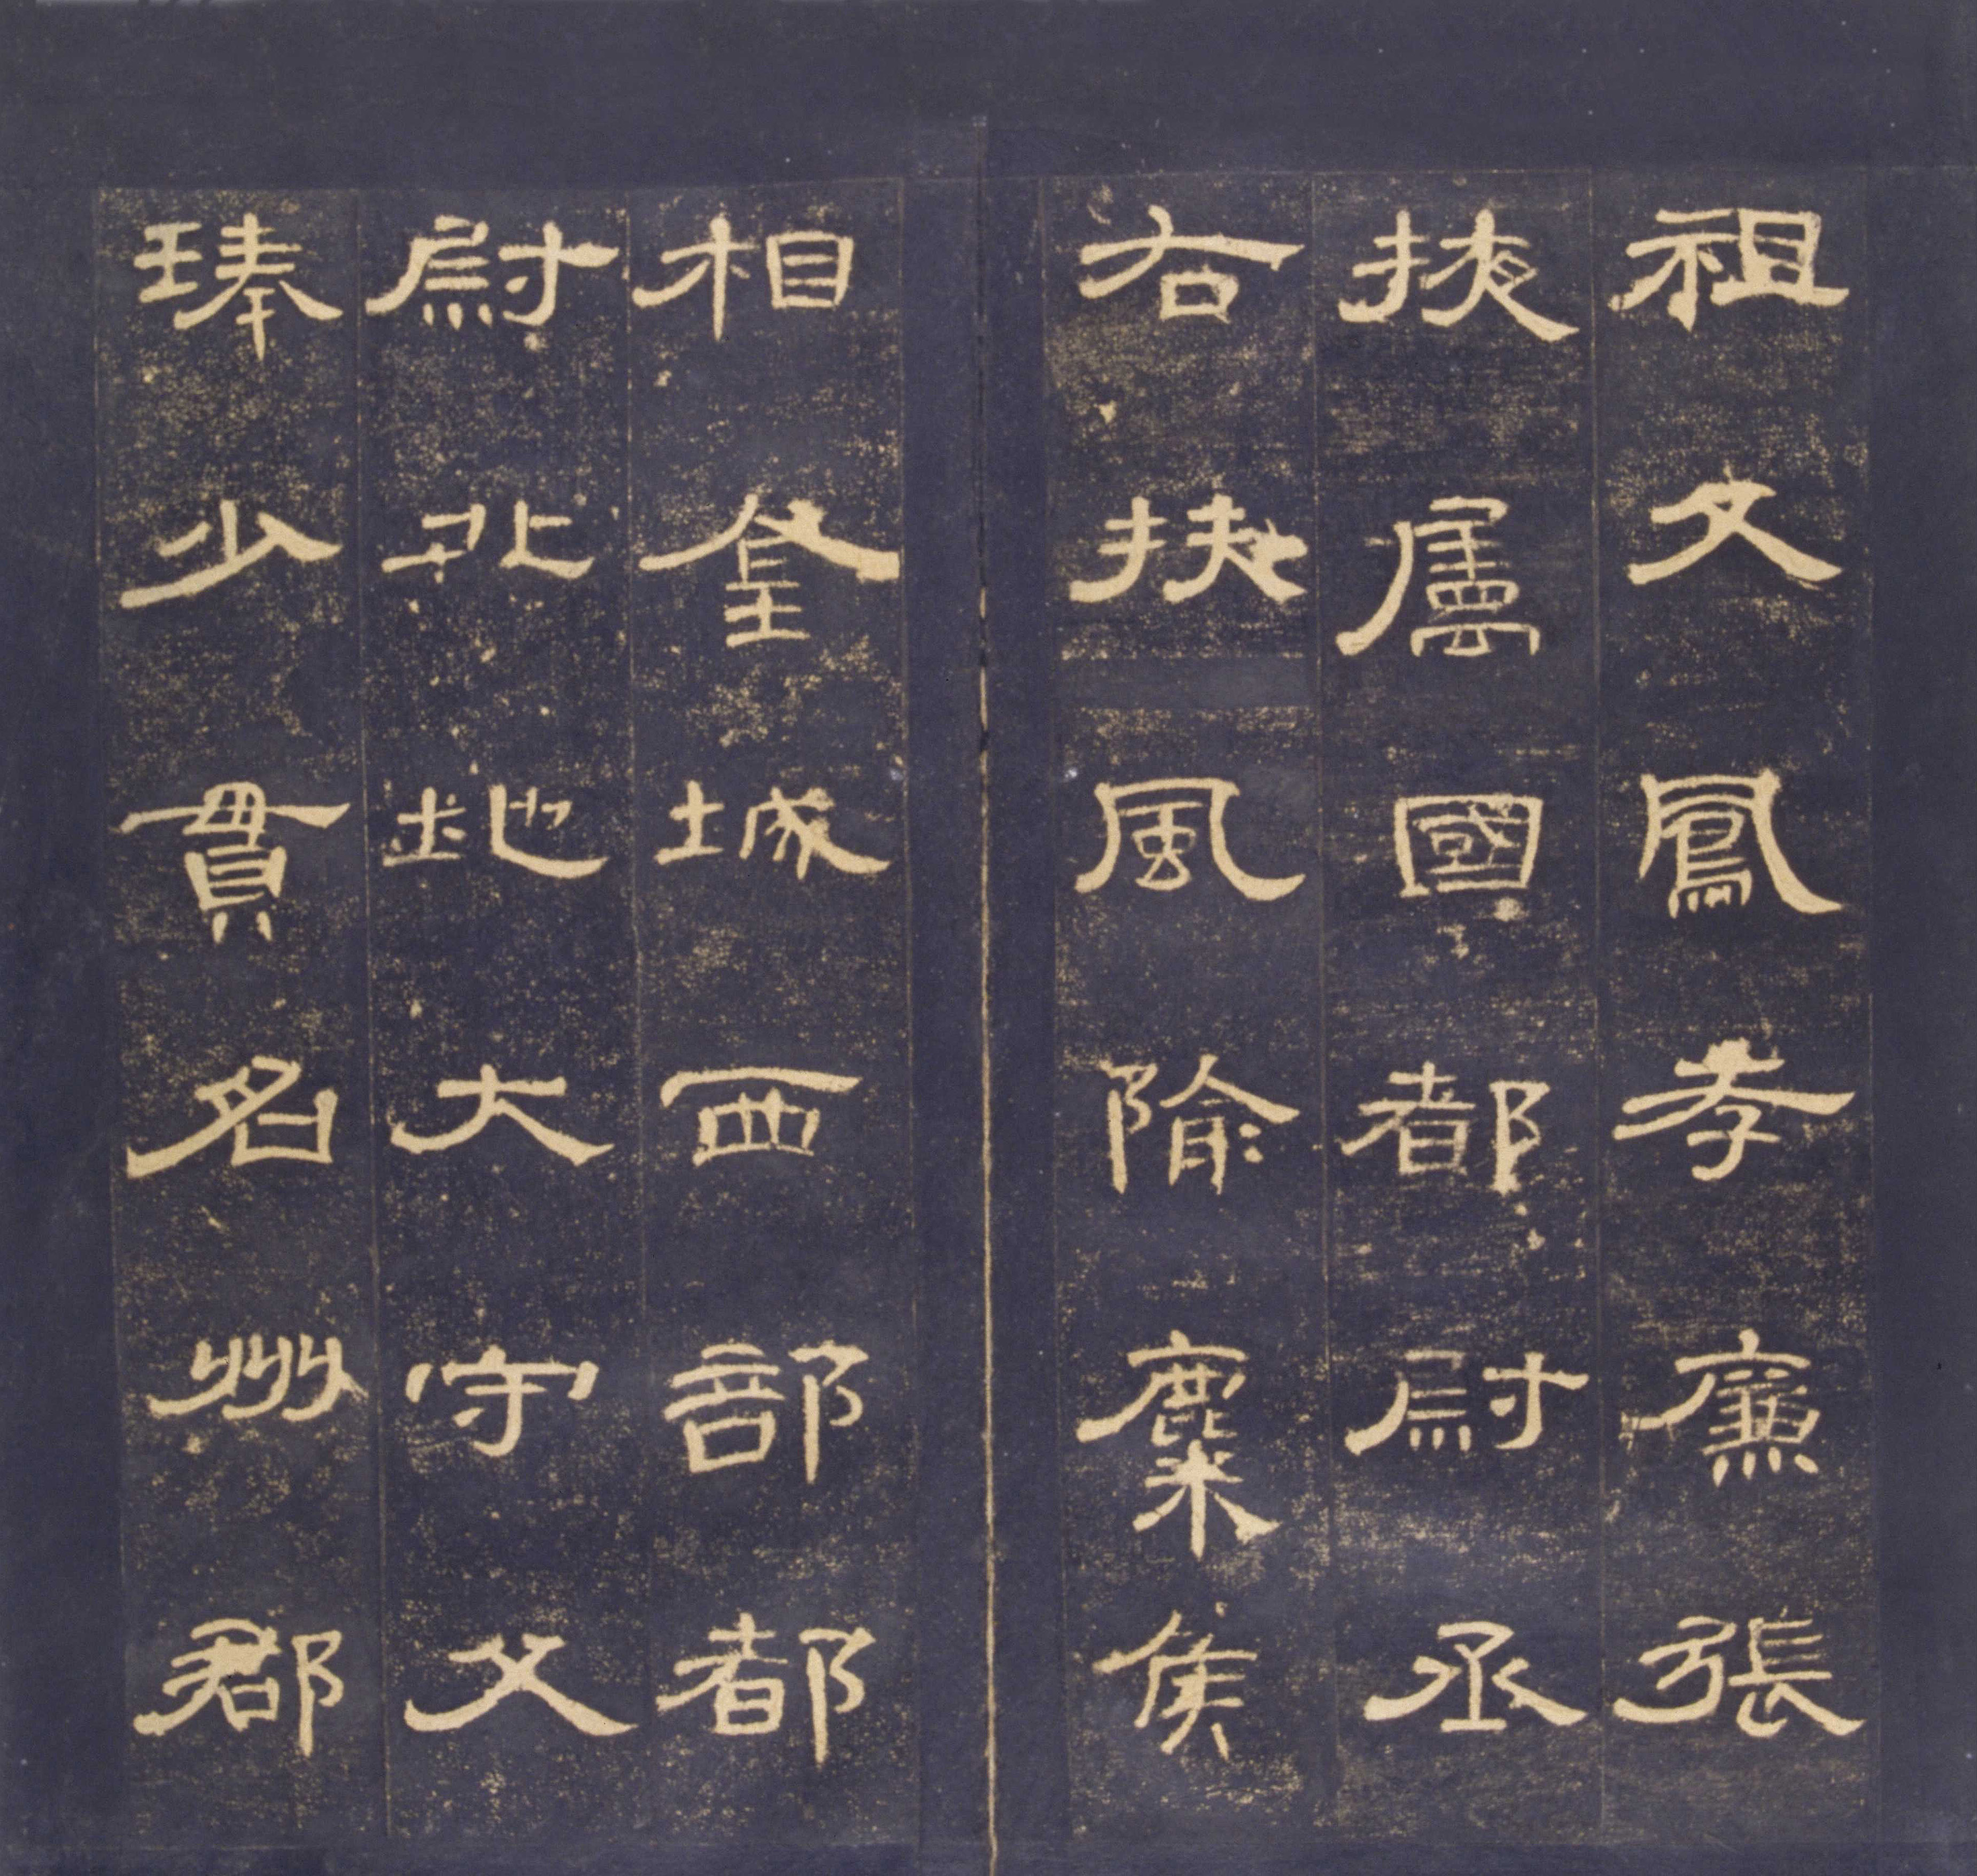 祖父鳳孝廉張
掖屬國都尉丞
右扶風隃麋侯
相金城西部都
尉北地大守父
琫少貫名州郡